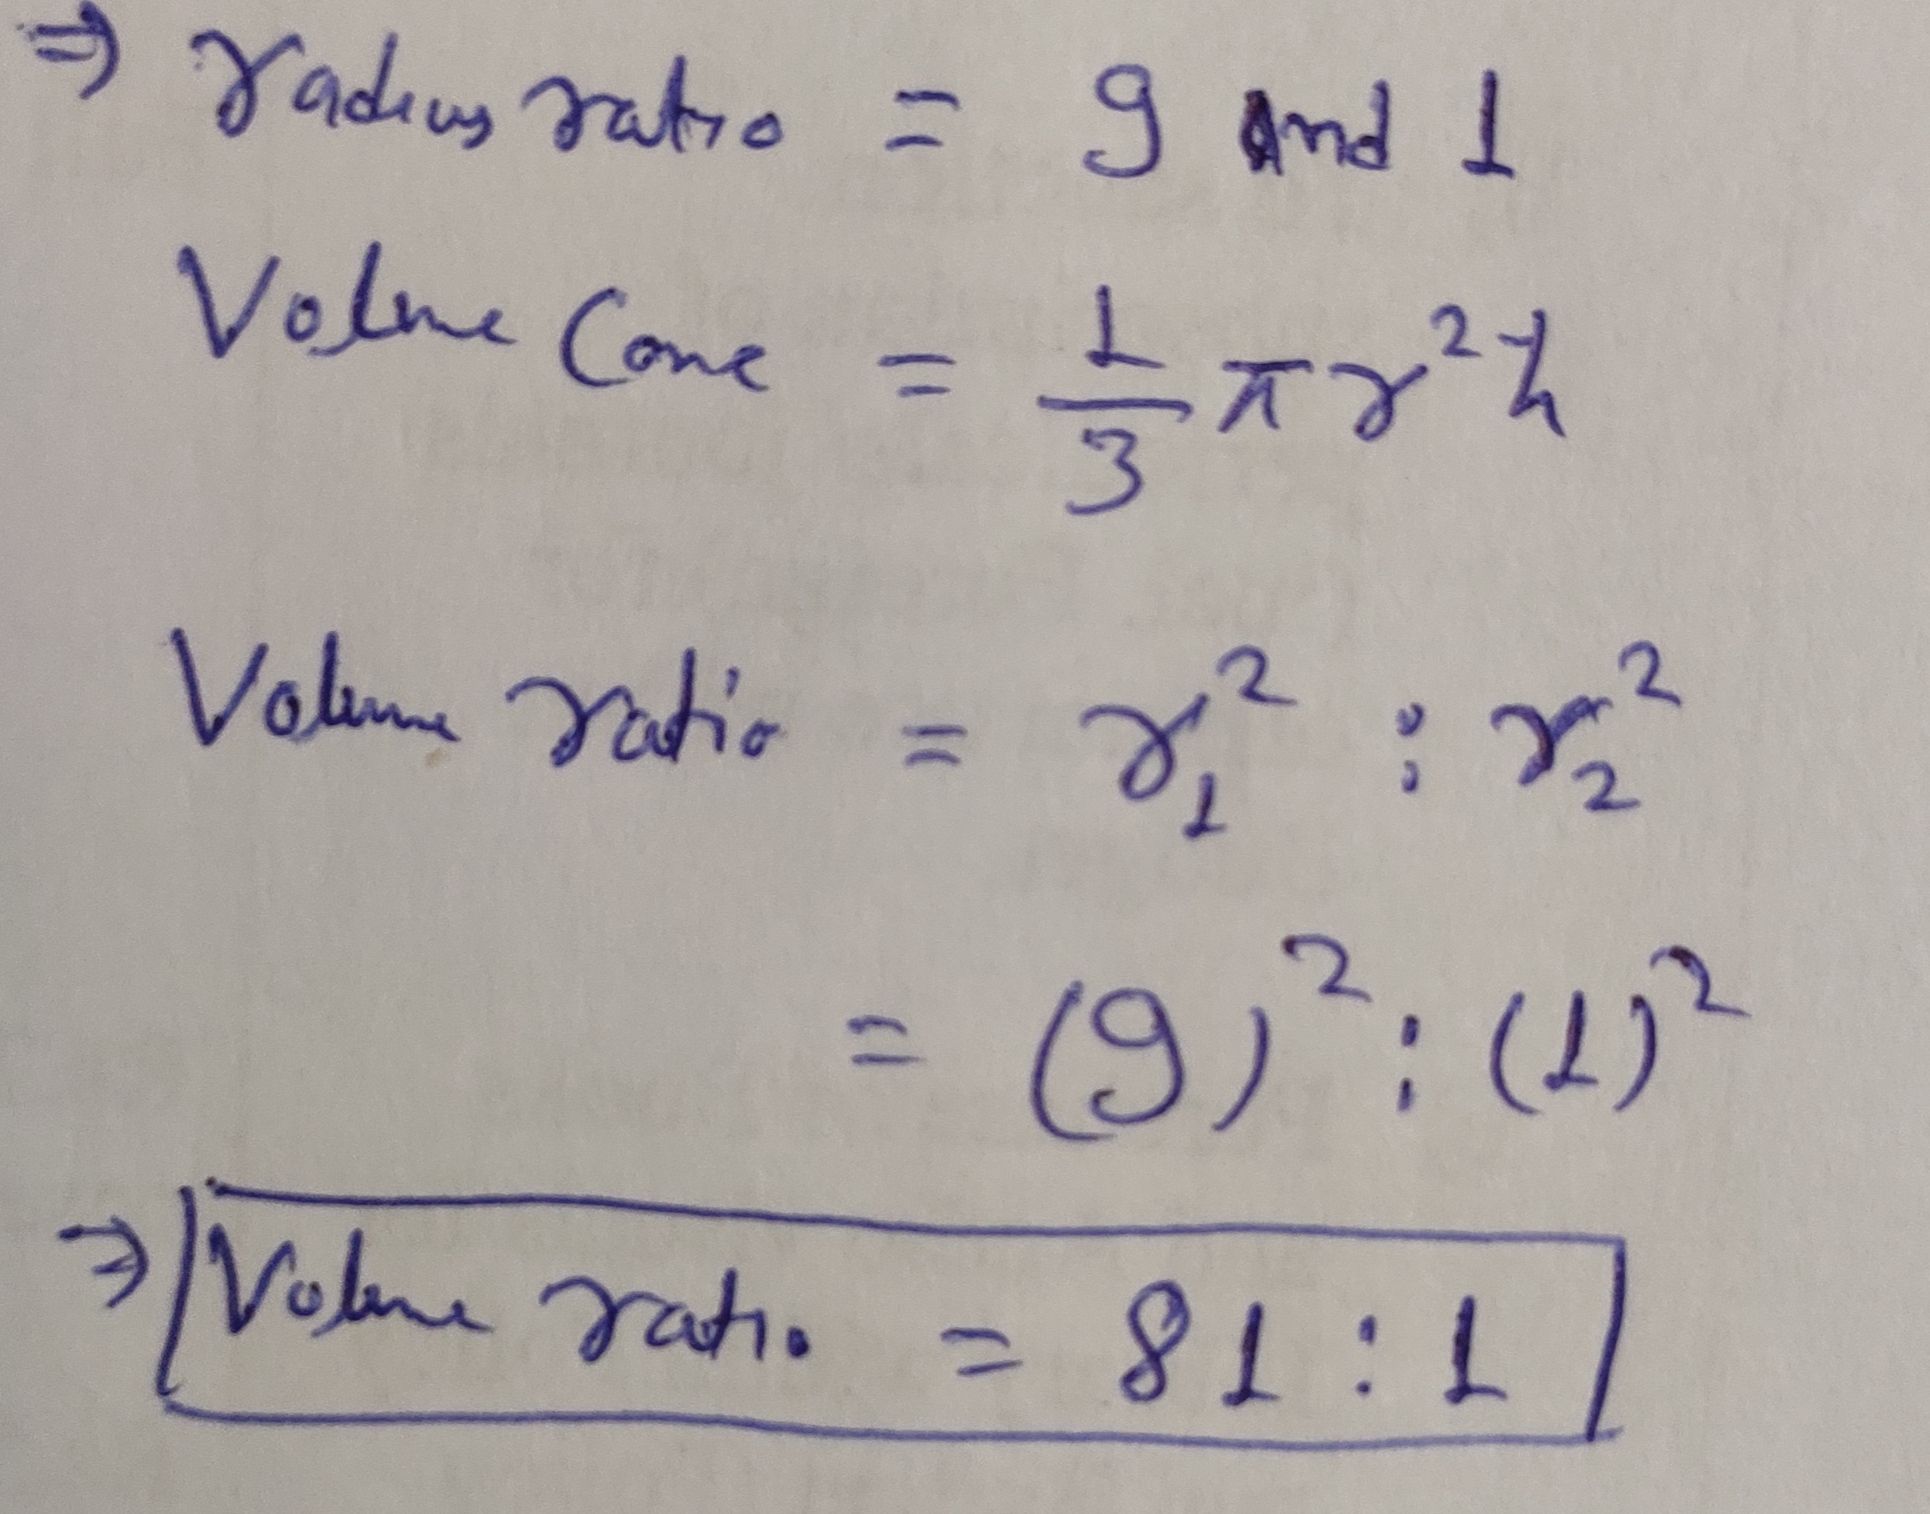 ⇒ radius ratio = 9 and 1
Volume Cone = 1/3 πr²h
Volume ratio = r₁² : r₂²
= (9)² : (1)²
⇒ Volume ratio = 81 : 1